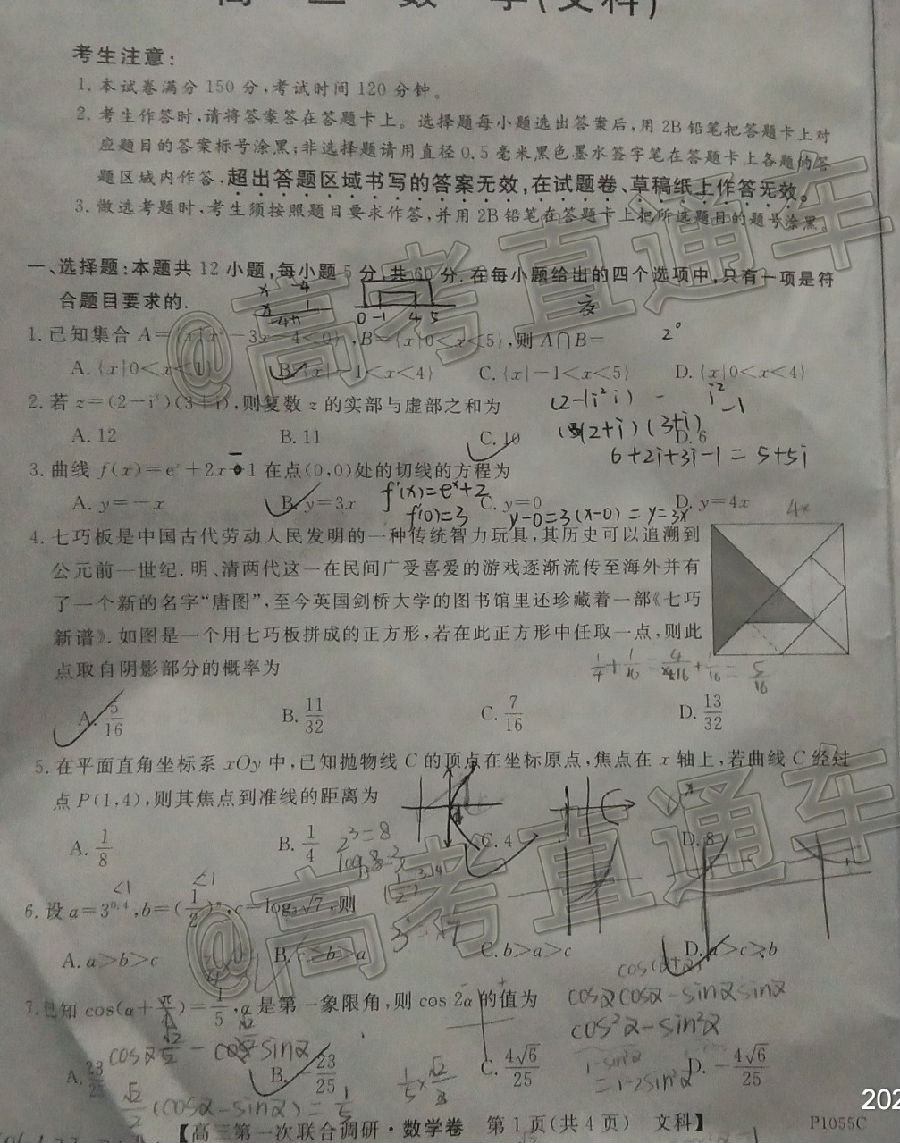 高三 数学(文科)
考生注意:
1. 本试卷满分 150 分,考试时间 120 分钟。
2. 考生作答时,请将答案答在答题卡上。选择题每小题选出答案后,用 2B 铅笔把答题卡上对
应题目的答案标号涂黑;非选择题请用直径 0.5 毫米黑色墨水签字笔在答题卡上各题的答
题区域内作答,超出答题区域书写的答案无效,在试题卷、草稿纸上作答无效。
3. 做选考题时,考生须按照题目要求作答,并用 2B 铅笔在答题卡上把所选题目的题号涂黑。
一、选择题:本题共 12 小题,每小题 5 分,共 60 分. 在每小题给出的四个选项中,只有一项是符
合题目要求的.
0 -1 4 5
1. 已知集合 A={x|x²-3x-4<0},B={x|0<x<5},则 A∩B=
A. {x|0<x<1} B. {x|-1<x<4} C. {x|-1<x<5} D. {x|0<x<4}
2. 若 z=(2-i³)(3+i),则复数 z 的实部与虚部之和为
A. 12 B. 11 C. 10 D. 6
(2-i²i) - i² -1
(2+i)(3+i)
6+2i+3i-1=5+5i
3. 曲线 f(x)=eˣ+2x-1 在点(0,0)处的切线的方程为
A. y=-x B. y=3x C. y=0 D. y=4x
f'(x)=eˣ+2
f'(0)=3 y-0=3(x-0)=y=3x
4x
4. 七巧板是中国古代劳动人民发明的一种传统智力玩具,其历史可以追溯到
公元前一世纪. 明、清两代这一在民间广受喜爱的游戏逐渐流传至海外并有
了一个新的名字“唐图”,至今英国剑桥大学的图书馆里还珍藏着一部《七巧
新谱》. 如图是一个用七巧板拼成的正方形,若在此正方形中任取一点,则此
点取自阴影部分的概率为
1/4+1/16=4/16+1/16=5/16
A. 5/16 B. 11/32 C. 7/16 D. 13/32
5. 在平面直角坐标系 xOy 中,已知抛物线 C 的顶点在坐标原点,焦点在 x 轴上,若曲线 C 经过
点 P(1,4),则其焦点到准线的距离为
A. 1/8 B. 1/4 C. 4 D. 8
2³=8
<1 <1
6. 设 a=3^0.4,b=(1/2)³,c=log₃√7,则
A. a>b>c B. c>b>a C. b>a>c D. a>c>b
cos(α+α)
7. 已知 cos(α+π/4)=1/5,α 是第一象限角,则 cos 2α 的值为
cosαcosα-sinαsinα
cos²α-sin²α
1-sin²α
=1-2sin²α
A. 23/25 B. -23/25 C. 4√6/25 D. -4√6/25
√2/2(cosα-sinα)=1/5
【高三第一次联合调研·数学卷 第 1 页(共 4 页) 文科】 P1055C
@高考直通车
@高考直通车
202